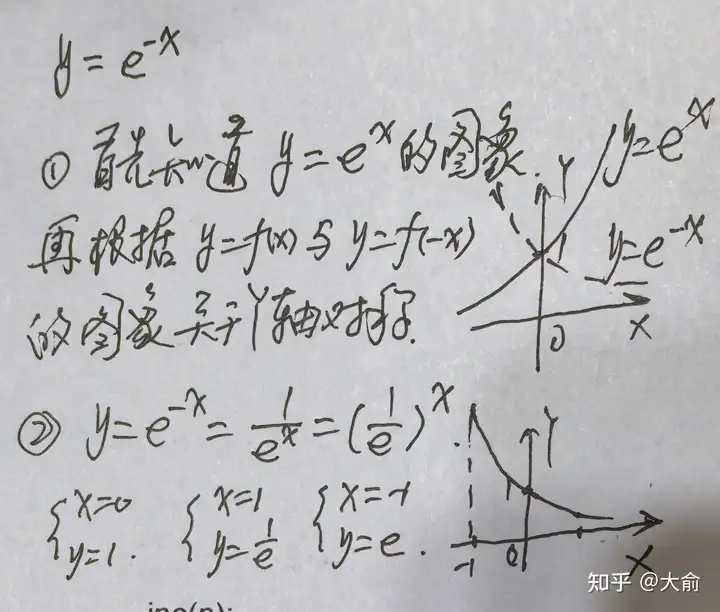 y = e^-x
① 首先知道 y = e^x 的图象.
再根据 y=f(x)与 y=f(-x)
的图象关于Y轴对称.
Y
y=e^x
1
y=e^-x
0
X
② y = e^-x = 1/e^x = (1/e)^x.
{ x=0 y=1. { x=1 y=1/e { x=-1 y=e.
Y
1
-1
0
X
知乎 @大俞
ing(n):